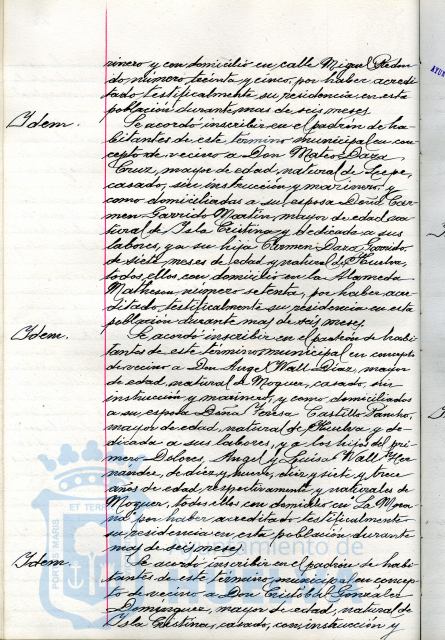 rinero y con domicilio en calle Miguel Redon
do número treinta y cinco, por haber acredi
tado testificalmente su residencia en esta
población durante mas de seis meses.
Idem. Se acordó inscribir en el padrón de ha-
bitantes de este termino municipal en con
cepto de vecino a Don Mateo Daza
Cruz, mayor de edad, natural de Lepe,
casado, sin instrucción y marinero, y
como domiciliadas a su esposa Doña Car
men Garrido Martin, mayor de edad, na
tural de Isla Cristina y dedicada a sus
labores, y a su hija Carmen Daza Garrido,
de siete meses de edad y natural de Huelva,
todos ellos con domicilio en la Alameda
Matheson número setenta, por haber acre
ditado testificalmente su residencia en esta
población durante mas de seis meses.
Idem. Se acordó inscribir en el padrón de habi
tantes de este término municipal en concepto
de vecino a Don Angel Wall Diaz, mayor
de edad, natural de Moguer, casado, sin
instrucción y marinero, y como domiciliados
a su esposa Doña Teresa Castillo
mayor de edad, natural de Huelva y de-
dicada a sus labores, y a los hijos del pri
mero Dolores, Angel y Luisa Wall Her
nández, de diez y nueve, diez y siete y trece
años de edad respectivamente y naturales de
Moguer, todos ellos con domicilio en La Mora
na por haber acreditado testificalmente
su residencia en esta población durante
mas de seis meses.
Idem. Se acordó inscribir en el padrón de habi
tantes de este termino municipal en concep
to de vecino a Don Cristóbal Gonzalez
Dominguez, mayor de edad, natural de
Isla Cristina, casado, con instrucción y
AYUN
PORTUS MARIS ET TERRAE
Ayuntamiento de